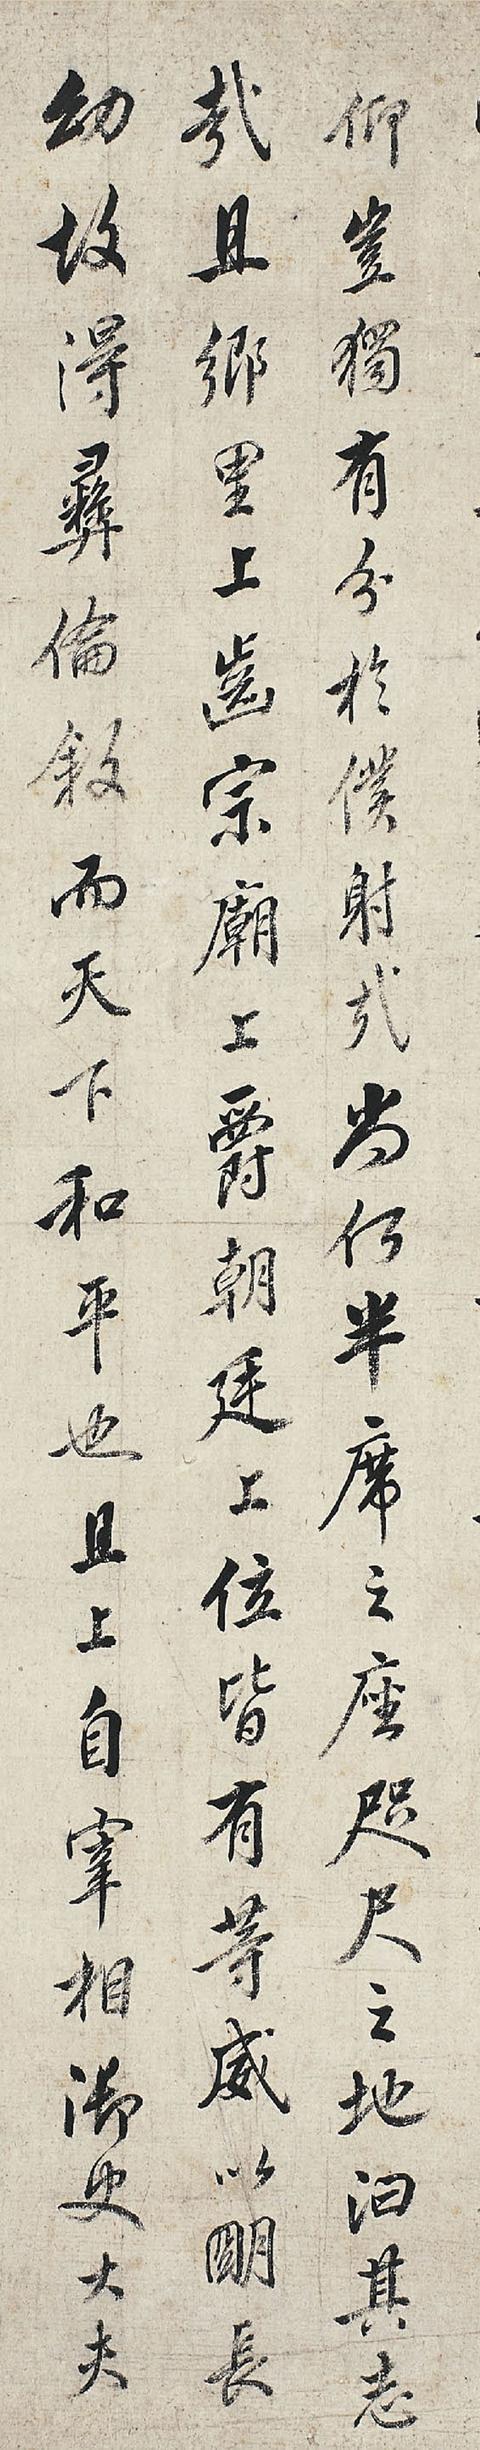 仰豈獨有分於僕射哉尚何半席之座咫尺之地汩其志
哉且鄉里上齒宗廟上爵朝廷上位皆有等威以明長
幼故得彞倫敘而天下和平也且上自宰相御史大夫